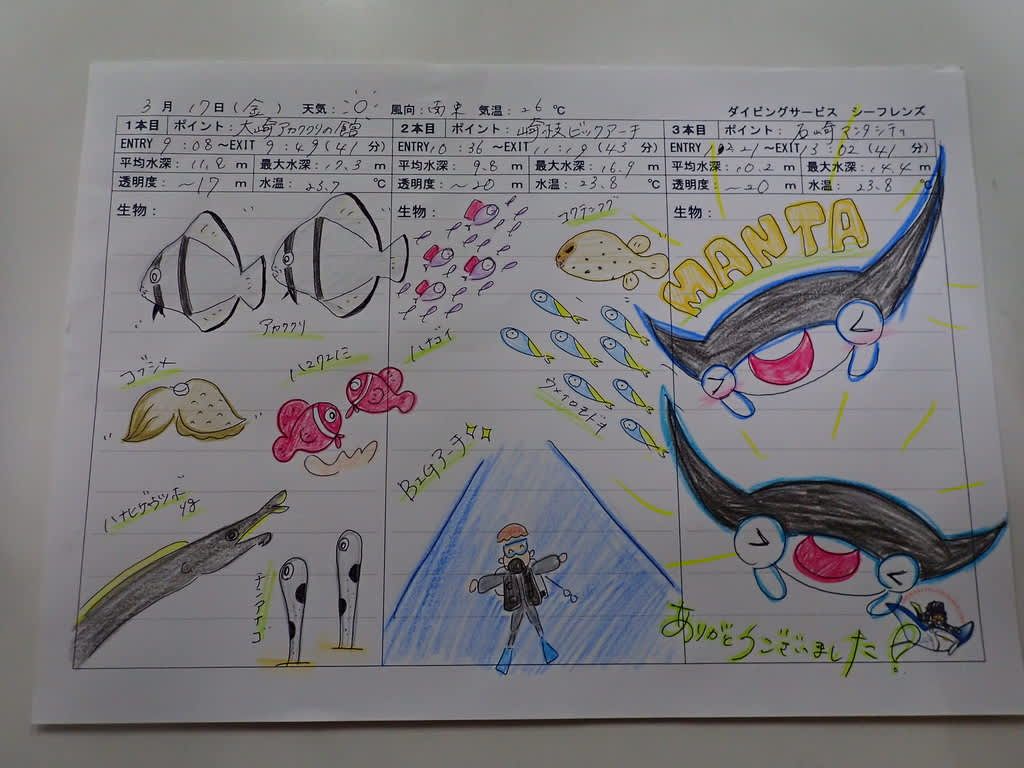 3月 17日(金) 天気: 風向: 南東 気温: 26℃ ダイビングサービス シーフレンズ
1本目 ポイント: 大崎アカククリの館 2本目 ポイント: 崎枝ビックアーチ 3本目 ポイント: 石崎マンタシティ
ENTRY 9:08 ~EXIT 9:49 (41分) ENTRY 10:36 ~EXIT 11:19 (43分) ENTRY 12:21 ~EXIT 13:02 (41分)
平均水深: 11.8 m 最大水深: 17.3 m 平均水深: 9.8 m 最大水深: 16.9 m 平均水深: 10.2 m 最大水深: 14.4 m
透明度: ~17 m 水温: 23.7 ℃ 透明度: ~20 m 水温: 23.8 ℃ 透明度: ~20 m 水温: 23.8 ℃
生物: 生物: 生物:
アカククリ
コブシメ
ハマクマノミ
ハナヒゲウツボ
yg
チンアナゴ
コクテンフグ
ハナゴイ
ウメイロモドキ
BIGアーチ
MANTA
ありがとうございました!